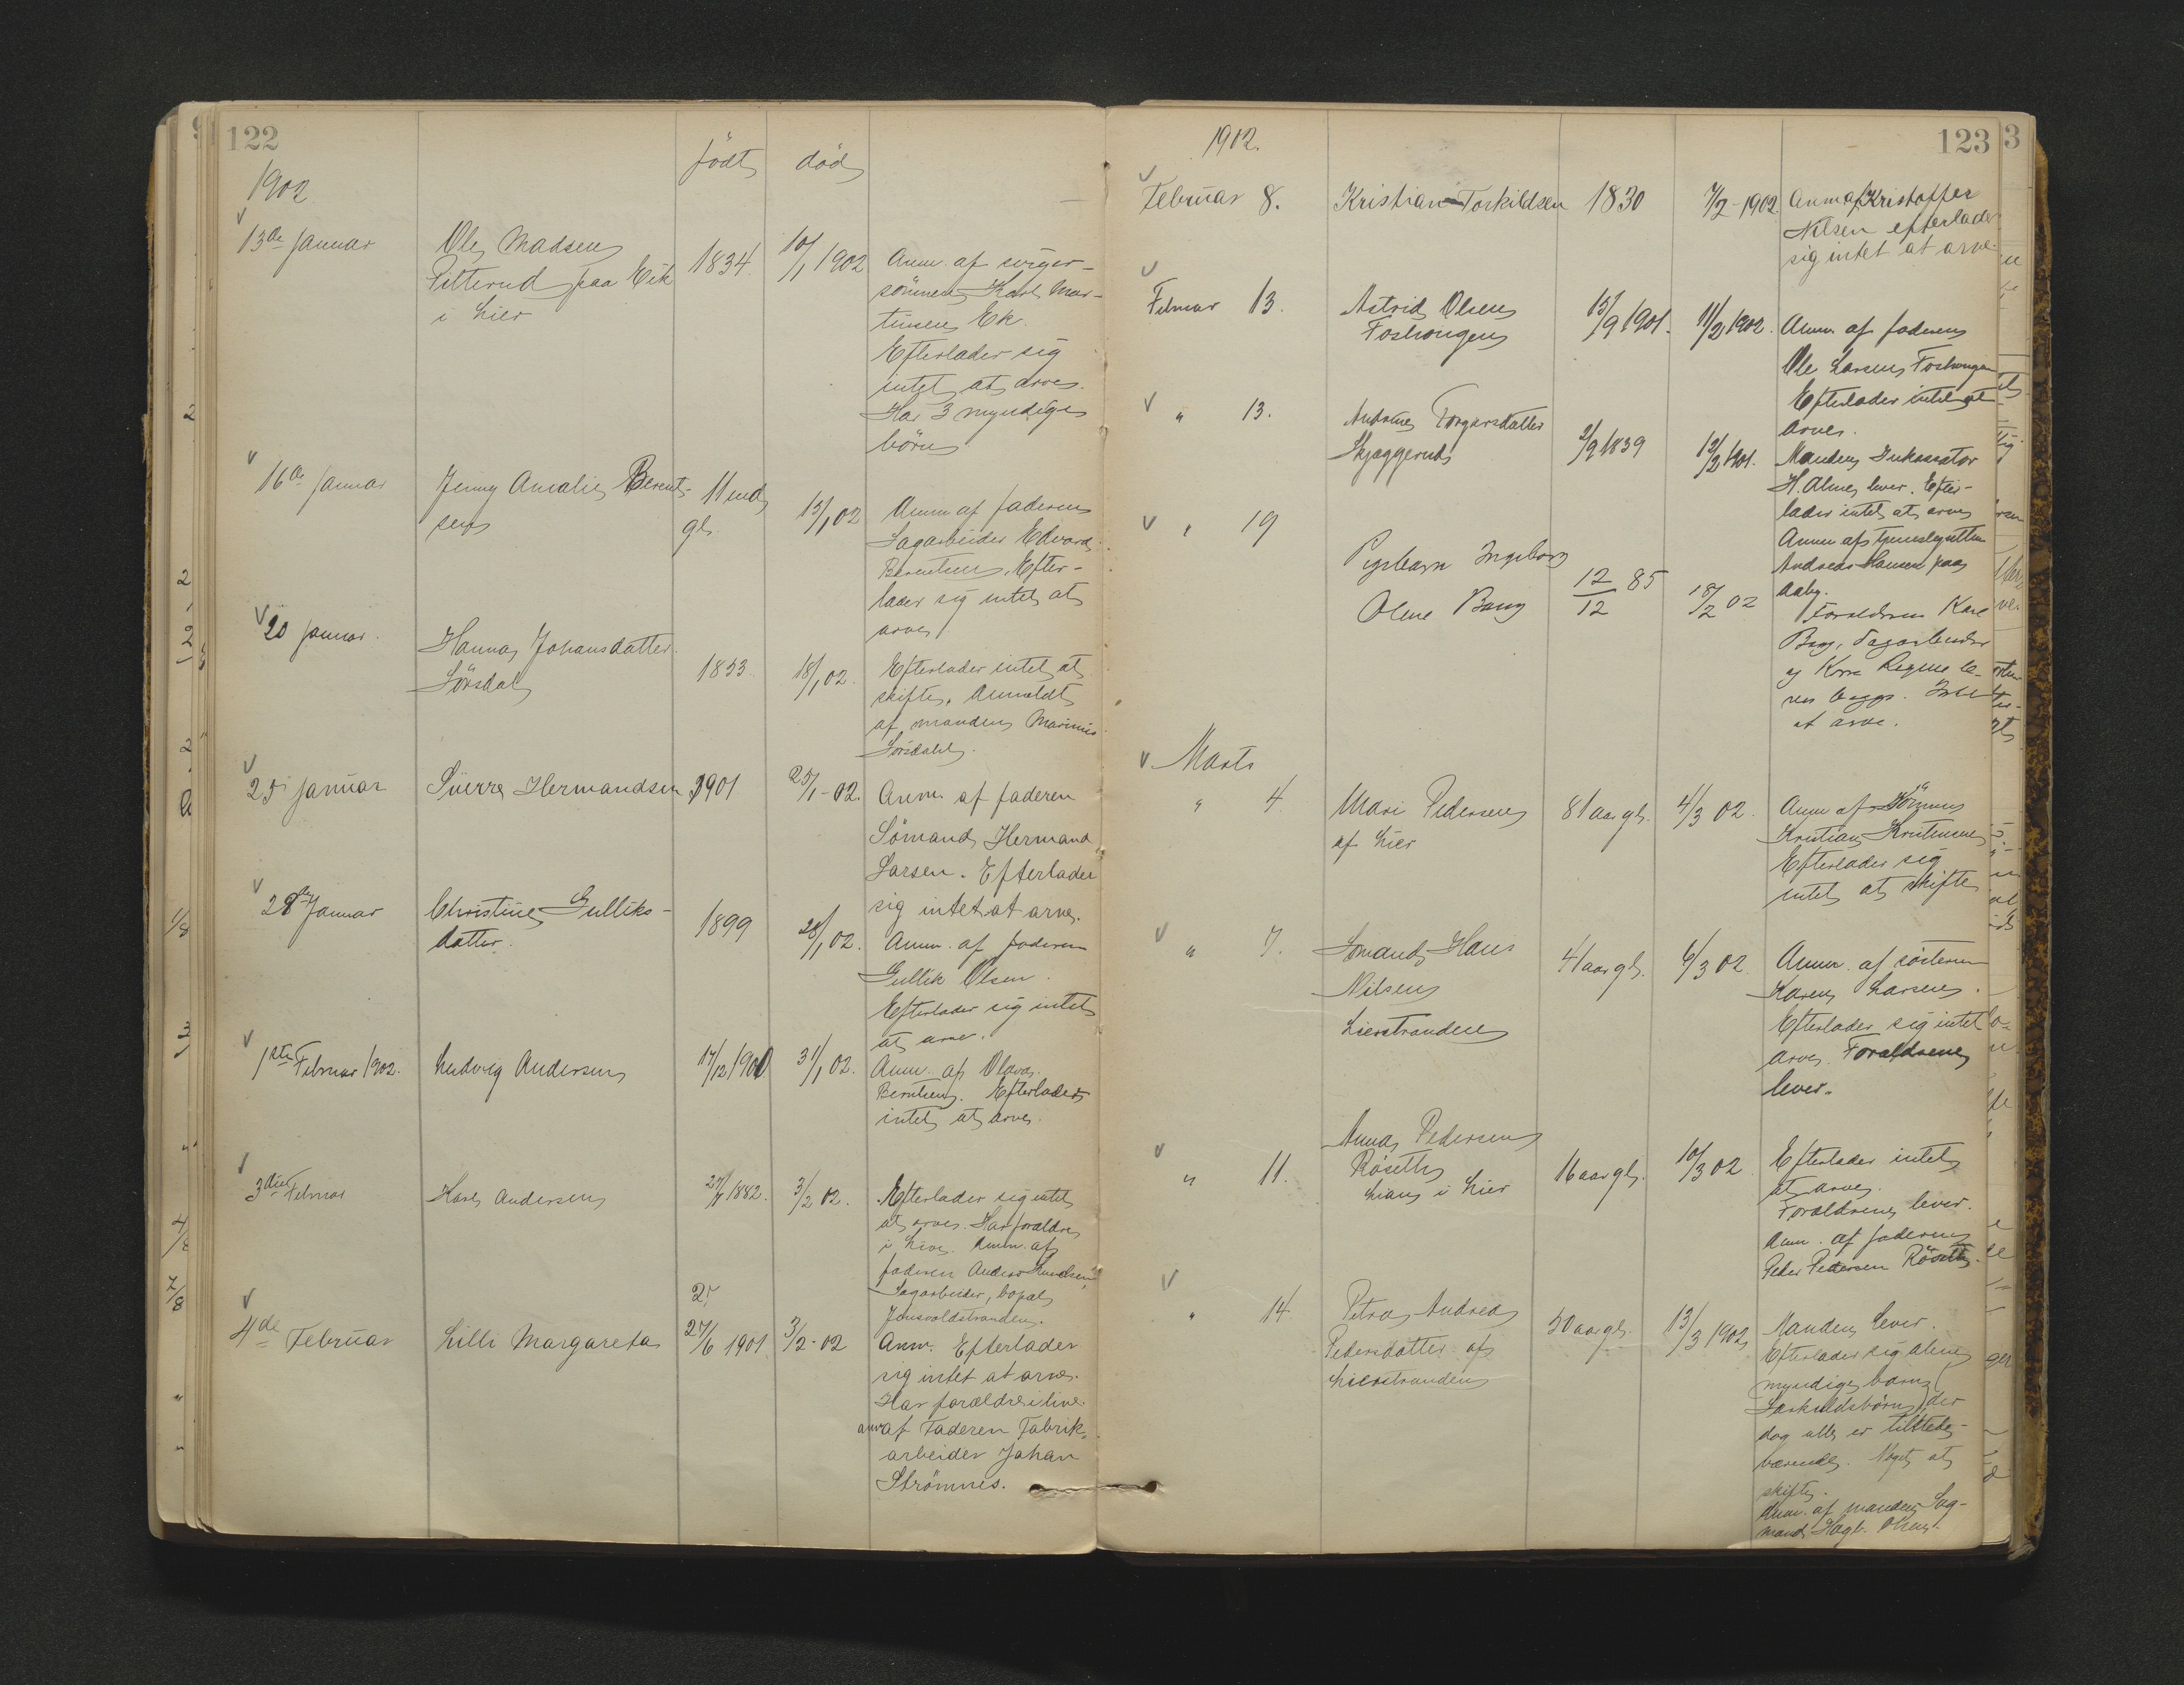 122
født død
1902
13de Januar
Ole Madsen
Pitterud paa Eik
i Lier
1834
10/1 1902
Anm. af sviger-
sönnen Karl Mar-
tinsen Ek.
Efterlader sig
intet at arve.
Har 3 myndige
börn
16de Januar
Jenny Amalie Berent-
sen
11 md
gl.
15/1 02
Anm af faderen
Sagarbeider Edvard
Berentsen. Efter-
lader sig intet at
arve
20 Januar.
Hanna Johansdatter
Sörsdal
1853
18/1 02.
Efterlader intet at
skifte. Anmeldt
af manden Marinius
Sörsdahl.
25 Januar
Sverre Hermandsen
1901
25/1-02.
Anm. af faderen
Sömand Hermand
Larsen. Efterlader
sig intet at arve.
28de Januar
Christine Gulliks-
datter.
1899
28/1 02.
Anm. af faderen
Gullik Olsen.
Efterlader sig intet
at arve.
1ste Februar 1902.
Ludvig Andersen
17/12 1900
31/1 02.
Anm. af Olava
Berntsen. Efterlader
intet at arve.
3die Februar
Karl Andersen
1882.
3/2 02.
Efterlader sig intet
at arve. Har forældre
i Live. Anm. af
faderen Anders
Sagarbeider, bopæl
4de Februar
Lilli Margareta
27/6 1901
3/2-02
Anm. Efterlader
sig intet at arve.
Har forældre i live.
anm af Faderen Fabrik-
arbeider Johan
Strömnes.
1902.
123
Februar 8.
Kristian Torkildsen
1830
7/2-1902.
Anm af Kristoffer
Nilsen efterlader
sig intet at arve.
Februar 13.
Astrid Olsen
15/9 1901.
11/2 1902.
Anm. af faderen
Ole Larsen
Efterlader intet at
arve.
" 13.
Skjæggerud
2/9 1839
12/2 1901.
Manden Inkassator
H. Alme lever. Efter-
lader intet at arve
Anm af
Andreas Hansen paa
Aaby.
" 19
Pigebarn Ingeborg
Oline Bang
12/12 85
18/2 02
Forældrene Karl
Bang, Sagarbeider
og Kone Regine le-
ver begge. Intet
at arve.
Marts
" 4.
Mari Pedersen
af Lier
81 aar gl.
4/3 02.
Anm af
Kristian Kristensen
Efterlader sig
intet at skifte
" 7.
Sömand Hans
Nilsen
Lierstranden
41 aar gl.
6/3 02.
Anm. af söstern
Karen Larsen.
Efterlader sig intet
arve. Forældrene
lever.
" 11.
Anna Pedersen
Röseth
Lian i Lier
16 aar gl.
10/3 02
Efterlader intet
at arve.
Forældrene lever.
Anm. af faderen
Peder Pedersen Röseth.
" 14
Petra Andrea
Pedersdatter af
Lierstranden
50 aar gl.
13/3 1902
Manden lever.
Efterlader sig alene
myndige barn
Særkuldsbörn, der
dog alle er tilstede-
værende. Noget at
skifte.
Anm. af manden Sag-
mand Hagb. Olsen.